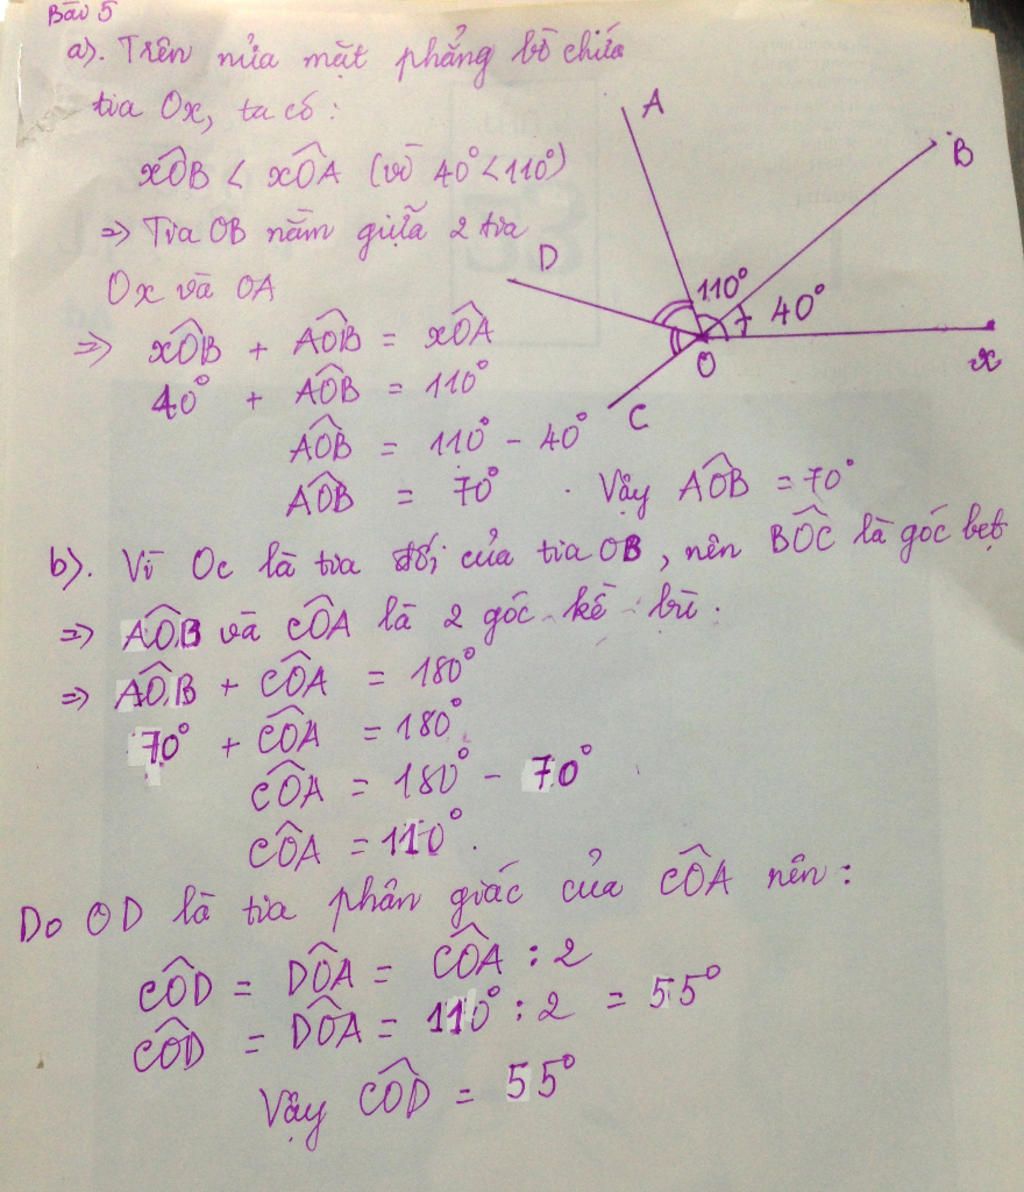 Bài 5
a). Trên nửa mặt phẳng bờ chứa
tia Ox, ta có:
xÔB < xÔA (vì 40° < 110°)
=> Tia OB nằm giữa 2 tia
Ox và OA
=> xÔB + AÔB = xÔA
40° + AÔB = 110°
AÔB = 110° - 40°
AÔB = 70° . Vậy AÔB = 70°
A
B
D
110°
40°
O
x
C
b). Vì Oc là tia đối của tia OB, nên BÔC là góc bẹt
=> AÔB và CÔA là 2 góc kề bù.
=> AÔB + CÔA = 180°
70° + CÔA = 180°
CÔA = 180° - 70°
CÔA = 110°.
Do OD là tia phân giác của CÔA nên:
CÔD = DÔA = CÔA : 2
CÔD = DÔA = 110° : 2 = 55°
Vậy CÔD = 55°